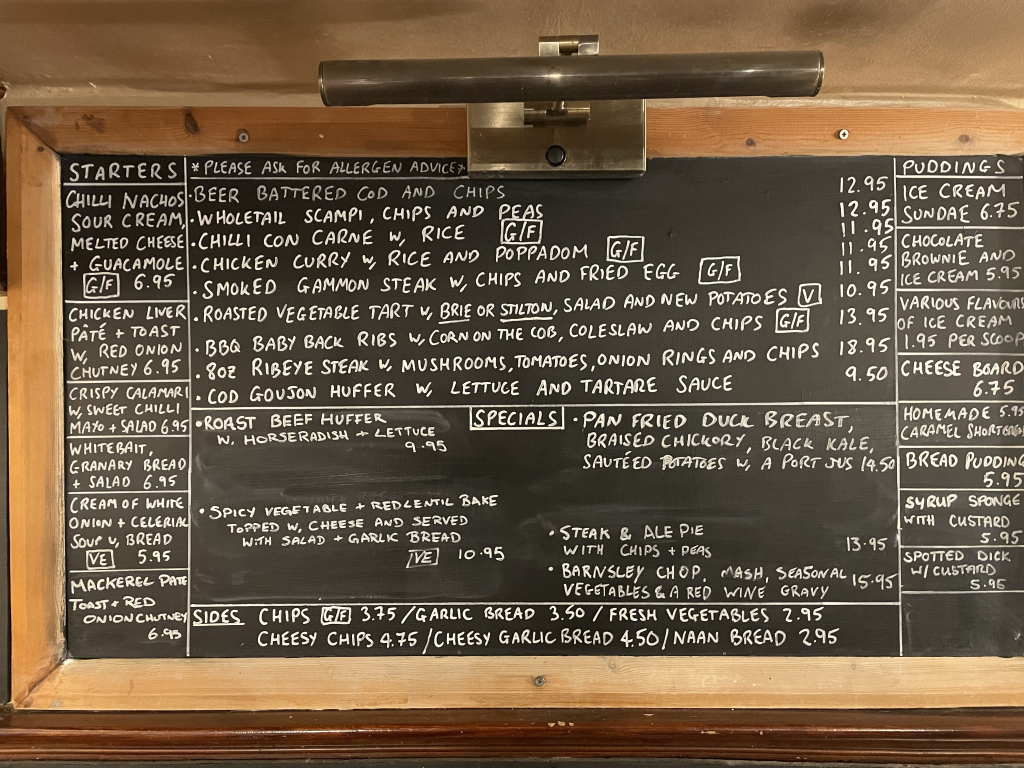 STARTERS
CHILLI NACHOS
SOUR CREAM,
MELTED CHEESE
+ GUACAMOLE
G/F 6.95
CHICKEN LIVER
PÂTÉ + TOAST
W, RED ONION
CHUTNEY 6.95
CRISPY CALAMARI
W, SWEET CHILLI
MAYO + SALAD 6.95
WHITEBAIT,
GRANARY BREAD
+ SALAD 6.95
CREAM OF WHITE
ONION + CELERIAC
SOUP W, BREAD
VE 5.95
MACKEREL PATE
TOAST + RED
ONION CHUTNEY
6.95
*PLEASE ASK FOR ALLERGEN ADVICE*
• BEER BATTERED COD AND CHIPS 12.95
• WHOLETAIL SCAMPI, CHIPS AND PEAS 12.95
• CHILLI CON CARNE W, RICE G/F 11.95
• CHICKEN CURRY W, RICE AND POPPADOM G/F 11.95
• SMOKED GAMMON STEAK W, CHIPS AND FRIED EGG G/F 11.95
• ROASTED VEGETABLE TART W, BRIE OR STILTON, SALAD AND NEW POTATOES V 10.95
• BBQ BABY BACK RIBS W, CORN ON THE COB, COLESLAW AND CHIPS G/F 13.95
• 8OZ RIBEYE STEAK W, MUSHROOMS, TOMATOES, ONION RINGS AND CHIPS 18.95
• COD GOUJON HUFFER W, LETTUCE AND TARTARE SAUCE 9.50
SPECIALS
• ROAST BEEF HUFFER
W. HORSERADISH + LETTUCE
9.95
• SPICY VEGETABLE + RED LENTIL BAKE
TOPPED W, CHEESE AND SERVED
WITH SALAD + GARLIC BREAD
VE 10.95
• PAN FRIED DUCK BREAST,
BRAISED CHICKORY, BLACK KALE,
SAUTÉED POTATOES W, A PORT JUS 14.50
• STEAK & ALE PIE
WITH CHIPS + PEAS 13.95
• BARNSLEY CHOP, MASH, SEASONAL
VEGETABLES & A RED WINE GRAVY 15.95
SIDES CHIPS G/F 3.75 / GARLIC BREAD 3.50 / FRESH VEGETABLES 2.95
CHEESY CHIPS 4.75 / CHEESY GARLIC BREAD 4.50 / NAAN BREAD 2.95
PUDDINGS
ICE CREAM
SUNDAE 6.75
CHOCOLATE
BROWNIE AND
ICE CREAM 5.95
VARIOUS FLAVOURS
OF ICE CREAM
1.95 PER SCOOP
CHEESE BOARD
6.75
HOMEMADE 5.95
CARAMEL
BREAD PUDDING
5.95
SYRUP SPONGE
WITH CUSTARD
5.95
SPOTTED DICK
W/ CUSTARD
5.95